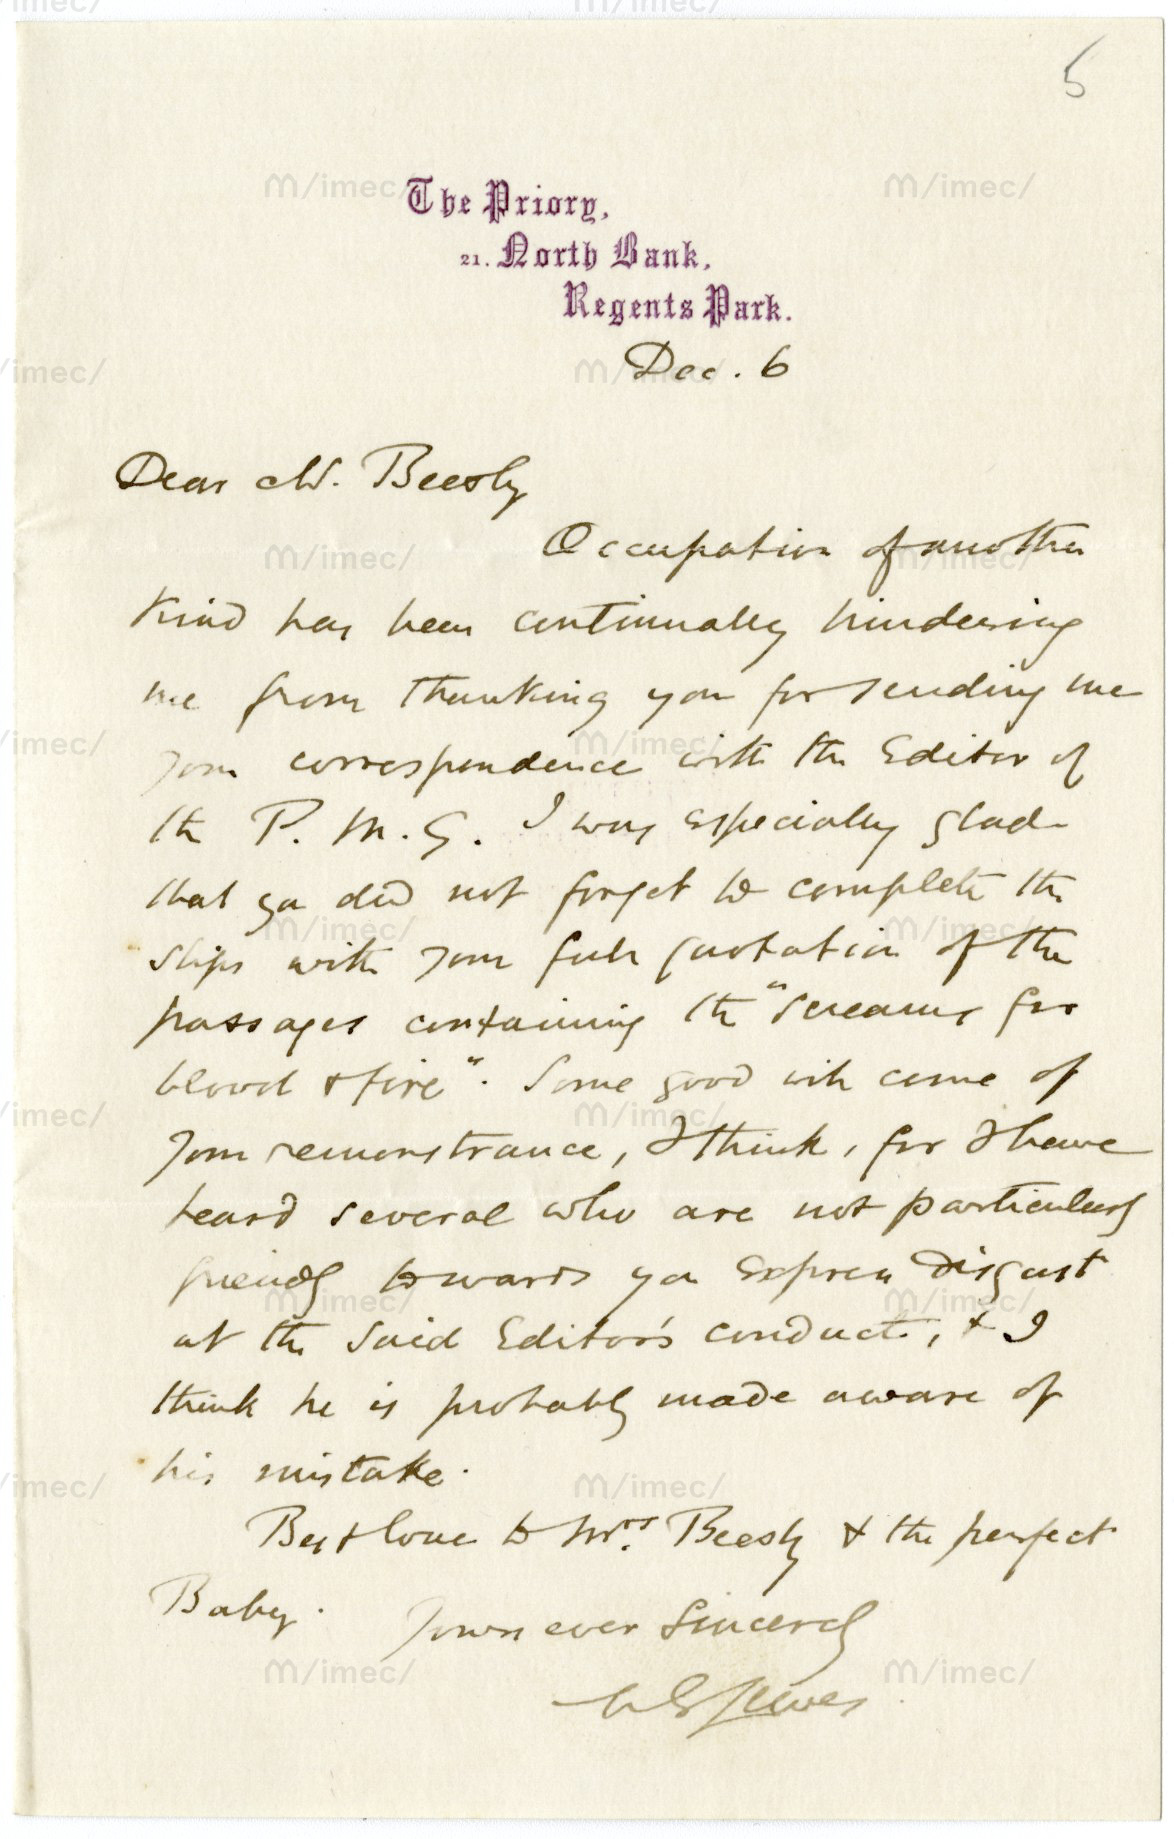 5
The Priory,
21. North Bank,
Regents Park.
Dec. 6
Dear Mr. Beesly
Occupation of another
kind has been continually hindering
me from thanking you for sending me
your correspondence with the Editor of
the P. M. G. I was especially glad
that you did not forget to complete the
slips with your full quotation of the
passages containing the "screams for
blood & fire". Some good will come of
your remonstrance, I think, for I have
heard several who are not particularly
friendly towards you express disgust
at the said Editor's conduct, & I
think he is probably made aware of
his mistake.
Best love to Mrs. Beesly & the perfect
Baby.
Yours ever sincerely
Lewes